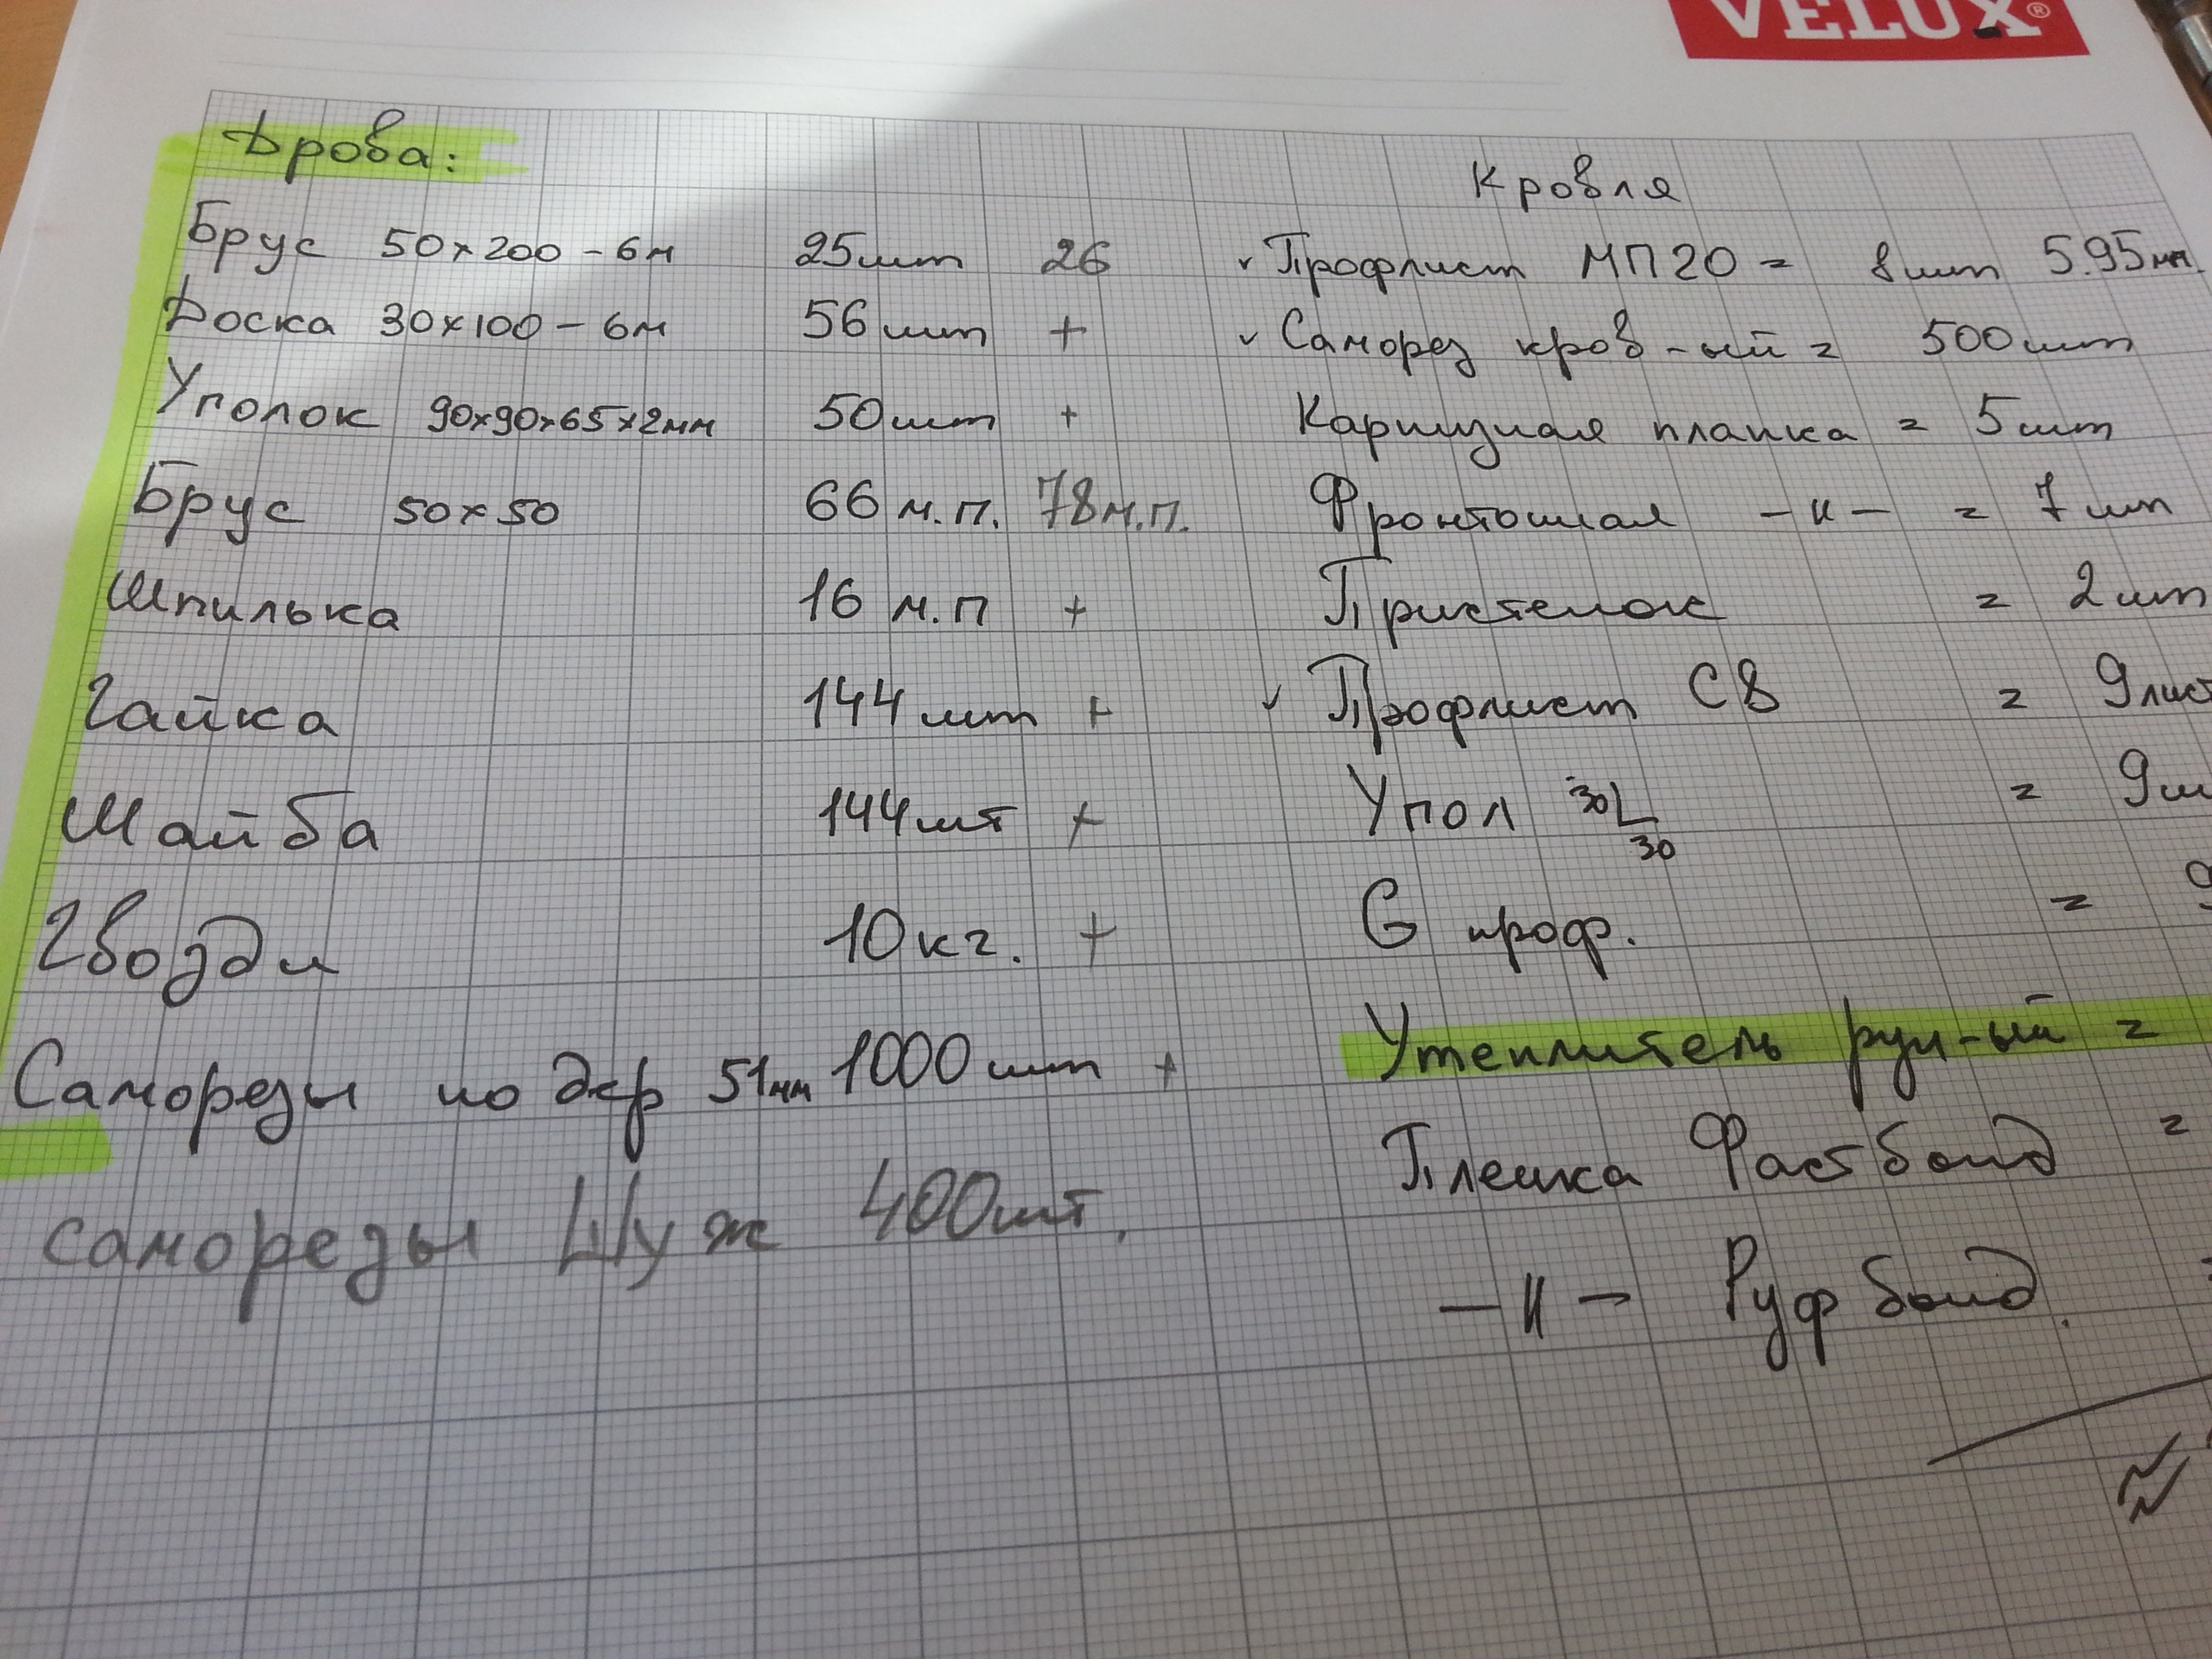 VELUX®
Дрова:
Брус 50x200 - 6м 25шт 26
Доска 30x100 - 6м 56шт +
Уголок 90x90x65x2мм 50шт +
Брус 50x50 66 м.п. 78м.п.
Шпилька 16 м.п +
Гайка 144шт +
Шайба 144шт +
Гвозди 10кг. +
Саморезы по дер 51мм 1000шт +
саморезы Шуж 400шт.
Кровля
✓ Профлист МП20 = 8шт 5.95мп.
✓ Саморез кров-ый = 500шт
Карнизная планка = 5шт
Фронтонная -"- = 7шт
Пристенок = 2шт
✓ Профлист С8 = 9лист
Угол 30 30 = 9ш
G проф. = 9
Утеплитель рул-ый =
Пленка Фастбонд =
-"- Руфбонд.